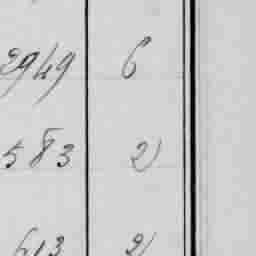 2949 6
583 2
613 2